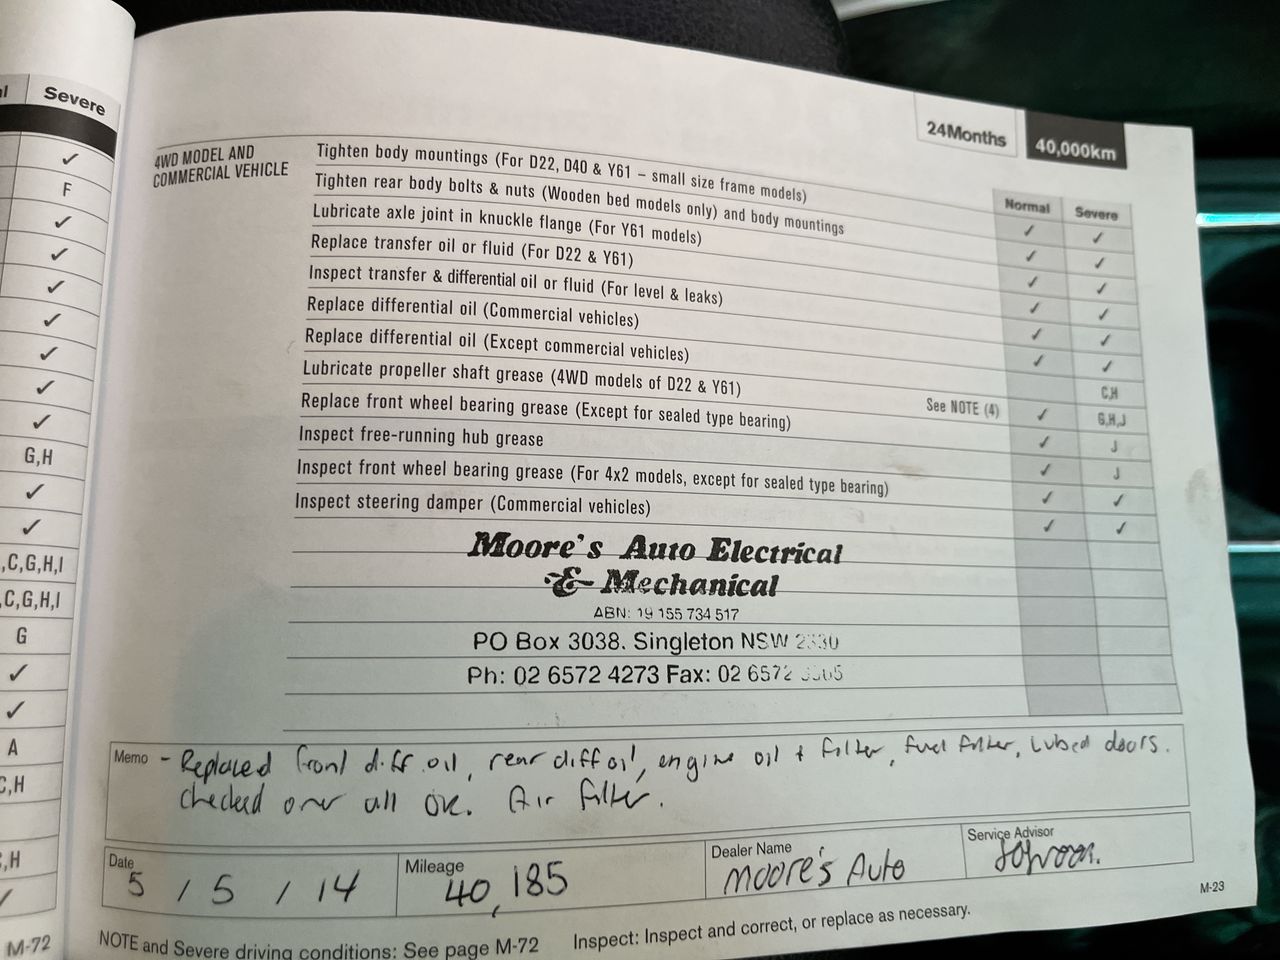 l Severe
✓
F
✓
✓
✓
✓
✓
✓
✓
G,H
✓
✓
,C,G,H,I
,C,G,H,I
G
✓
✓
A
C,H
,H
✓
M-72
24Months 40,000km
4WD MODEL AND
COMMERCIAL VEHICLE
Normal Severe
Tighten body mountings (For D22, D40 & Y61 – small size frame models) ✓ ✓
Tighten rear body bolts & nuts (Wooden bed models only) and body mountings ✓ ✓
Lubricate axle joint in knuckle flange (For Y61 models) ✓ ✓
Replace transfer oil or fluid (For D22 & Y61) ✓ ✓
Inspect transfer & differential oil or fluid (For level & leaks) ✓ ✓
Replace differential oil (Commercial vehicles) ✓ ✓
Replace differential oil (Except commercial vehicles) C,H
Lubricate propeller shaft grease (4WD models of D22 & Y61) See NOTE (4) ✓ G,H,J
Replace front wheel bearing grease (Except for sealed type bearing) ✓ J
Inspect free-running hub grease ✓ J
Inspect front wheel bearing grease (For 4x2 models, except for sealed type bearing) ✓ ✓
Inspect steering damper (Commercial vehicles) ✓ ✓
Moore's Auto Electrical
& Mechanical
ABN: 19 155 734 517
PO Box 3038. Singleton NSW 2330
Ph: 02 6572 4273 Fax: 02 6572
Memo - Replaced front diff oil, rear diff oil, engine oil + filter, fuel filter, lubed doors.
checked over all ok. Air filter.
Date
5 / 5 / 14
Mileage
40,185
Dealer Name
Moore's Auto
Service Advisor
M-23
NOTE and Severe driving conditions: See page M-72 Inspect: Inspect and correct, or replace as necessary.